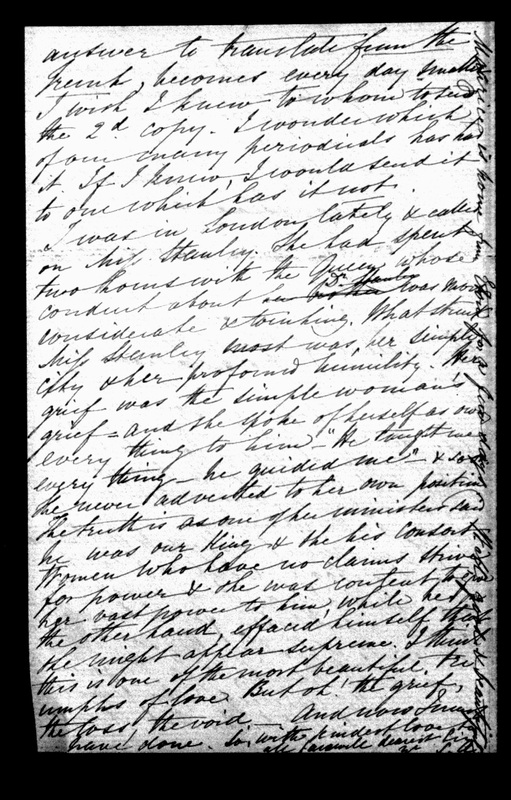 answer to translate from the
French, becomes every day smaller
I wish I knew to whom to send
the 2d copy. I wonder which
of our many periodicals has not
it. If I knew, I would send it
to one which has it not.
I was in London lately & called
on Miss Stanley. She had spent
two hours with the Queen, whose
conduct about Dr Stanley was most
considerate & touching. What struck
Miss Stanley most was, her simpli-
city & her profound humility. Her
grief was the simple woman's
grief - and she spoke of herself as owing
every thing to him - "He taught me
every thing - he guided me" & so on
She never adverted to her own position
The truth is as one of her ministers said
he was our King & she his consort
Women who have no claims, strive
for power & she was content to give
her vast power to him, while he, on
the other hand, effaced himself, that
she might appear supreme. I think
this is one of the most beautiful tri-
umphs of love. But oh! the grief,
the loss, the void - And now I must
have done. So, with kindest love to
all farewell dearest
is home from
for a few